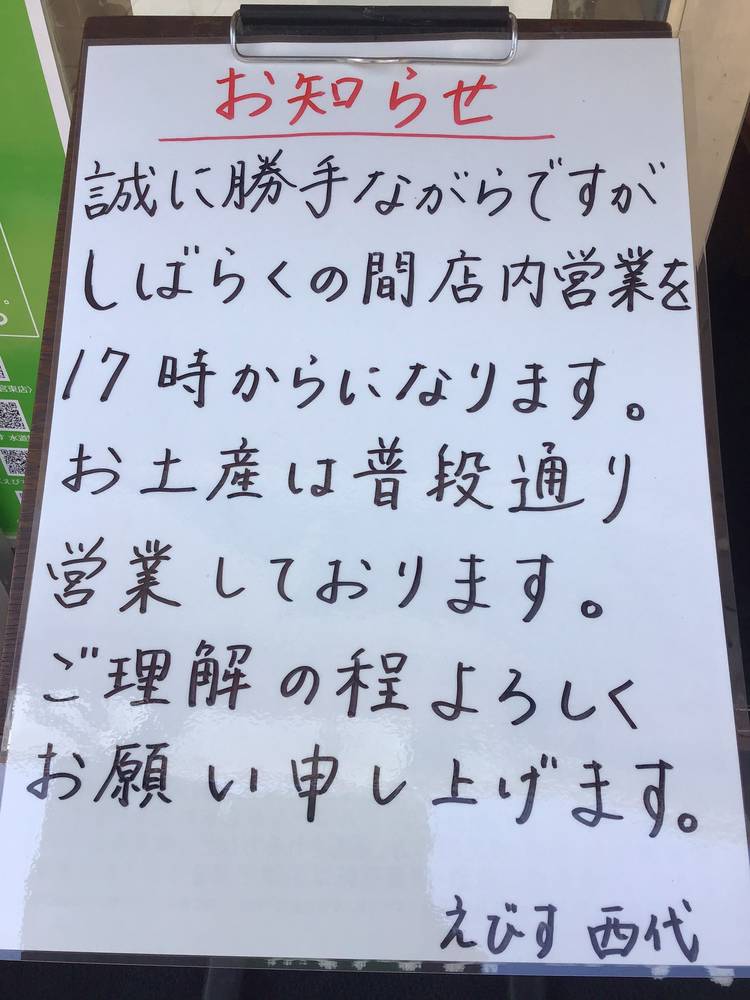 お知らせ
誠に勝手ながらですが
しばらくの間店内営業を
17時からになります。
お土産は普段通り
営業しております。
ご理解の程よろしく
お願い申し上げます。
えびす 西代